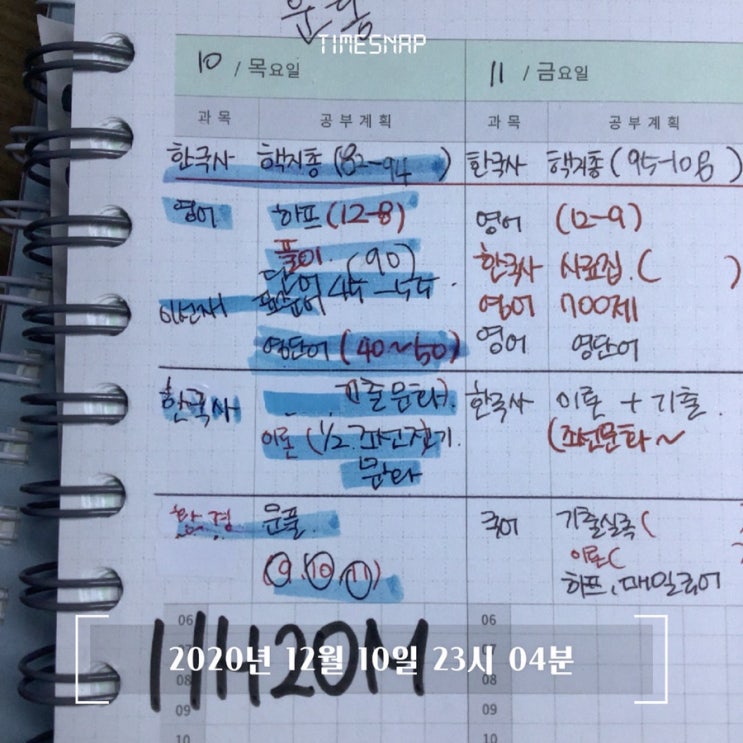 운동
TIMESNAP
10 / 목요일
11 / 금요일
과목 공부계획
과목 공부계획
한국사 핵지총 (82-94)
한국사 핵지총 (95-108)
영어 하프 (12-8)
영어 (12-9)
풀이. (90)
한국사 사료집. ( )
단어
영어 700제
영단어 (40~50)
영어 영단어
한국사 기출문화).
한국사 이론 + 기출.
이론 (1/2.
(조선문화~
문화
운풀.
국어 기출실록(
(9, 10, 11)
이론(
하프, 매일국어
06
06
2020년 12월 10일 23시 04분
111120M
08
09
09
10